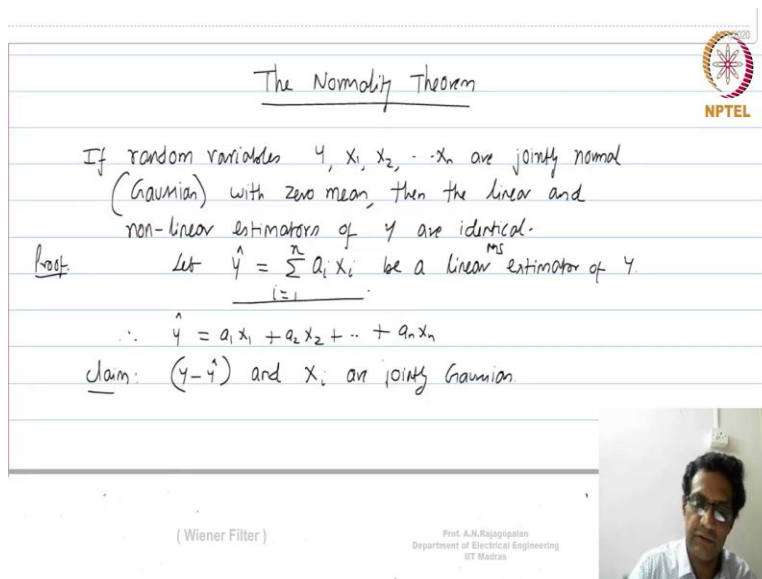 2020
NPTEL
The Normality Theorem
If random variables y, x₁, x₂, ... xₙ are jointly normal
(Gaussian) with zero mean, then the linear and
non-linear estimators of y are identical.
Proof. Let ŷ = Σⁿᵢ₌₁ aᵢ xᵢ be a linear MS estimator of y.
∴ ŷ = a₁x₁ + a₂x₂ + .. + aₙxₙ
Claim: (y-ŷ) and xᵢ are jointly Gaussian.
( Wiener Filter )
Prof. A.N.Rajagopalan
Department of Electrical Engineering
IIT Madras